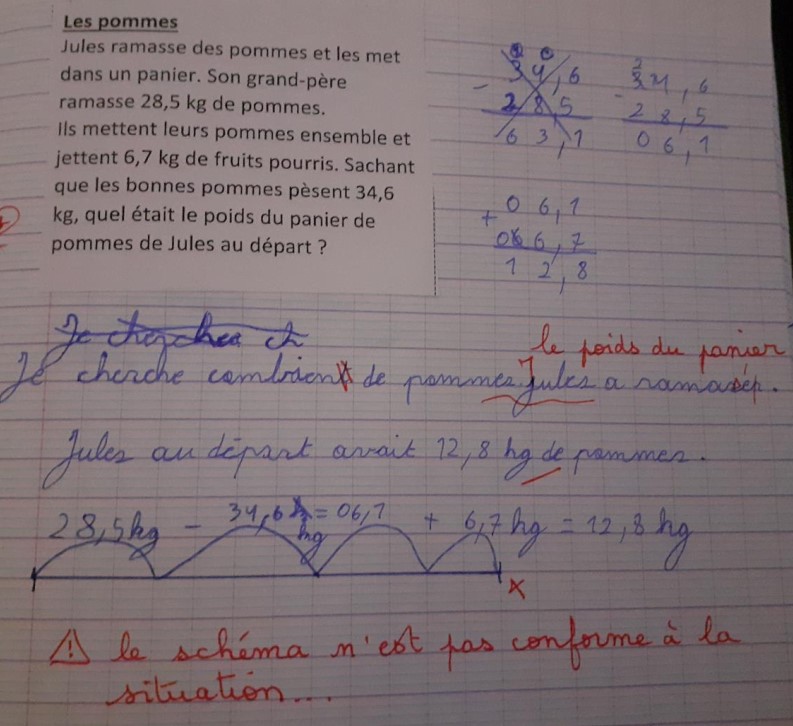 Les pommes
Jules ramasse des pommes et les met
dans un panier. Son grand-père
ramasse 28,5 kg de pommes.
Ils mettent leurs pommes ensemble et
jettent 6,7 kg de fruits pourris. Sachant
que les bonnes pommes pèsent 34,6
kg, quel était le poids du panier de
pommes de Jules au départ ?
34,6
- 28,5
63,1
34,6
- 28,5
06,1
06,1
+ 06,7
12,8
Je cherche ch
le poids du panier
Je cherche combien de pommes Jules a ramassé.
Jules au départ avait 12,8 kg de pommes.
28,5kg - 34,6 kg = 06,1 + 6,7 kg = 12,8 kg
x
⚠ le schéma n'est pas conforme à la
situation...